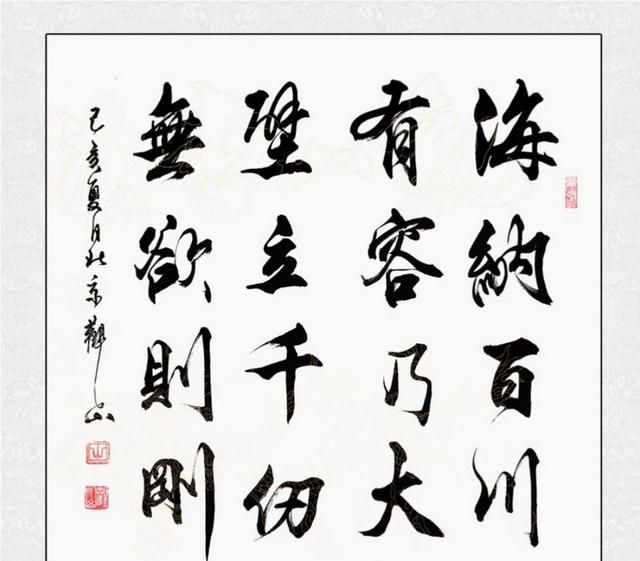 海納百川
有容乃大
壁立千仞
無欲則剛
己亥夏月北京觀山